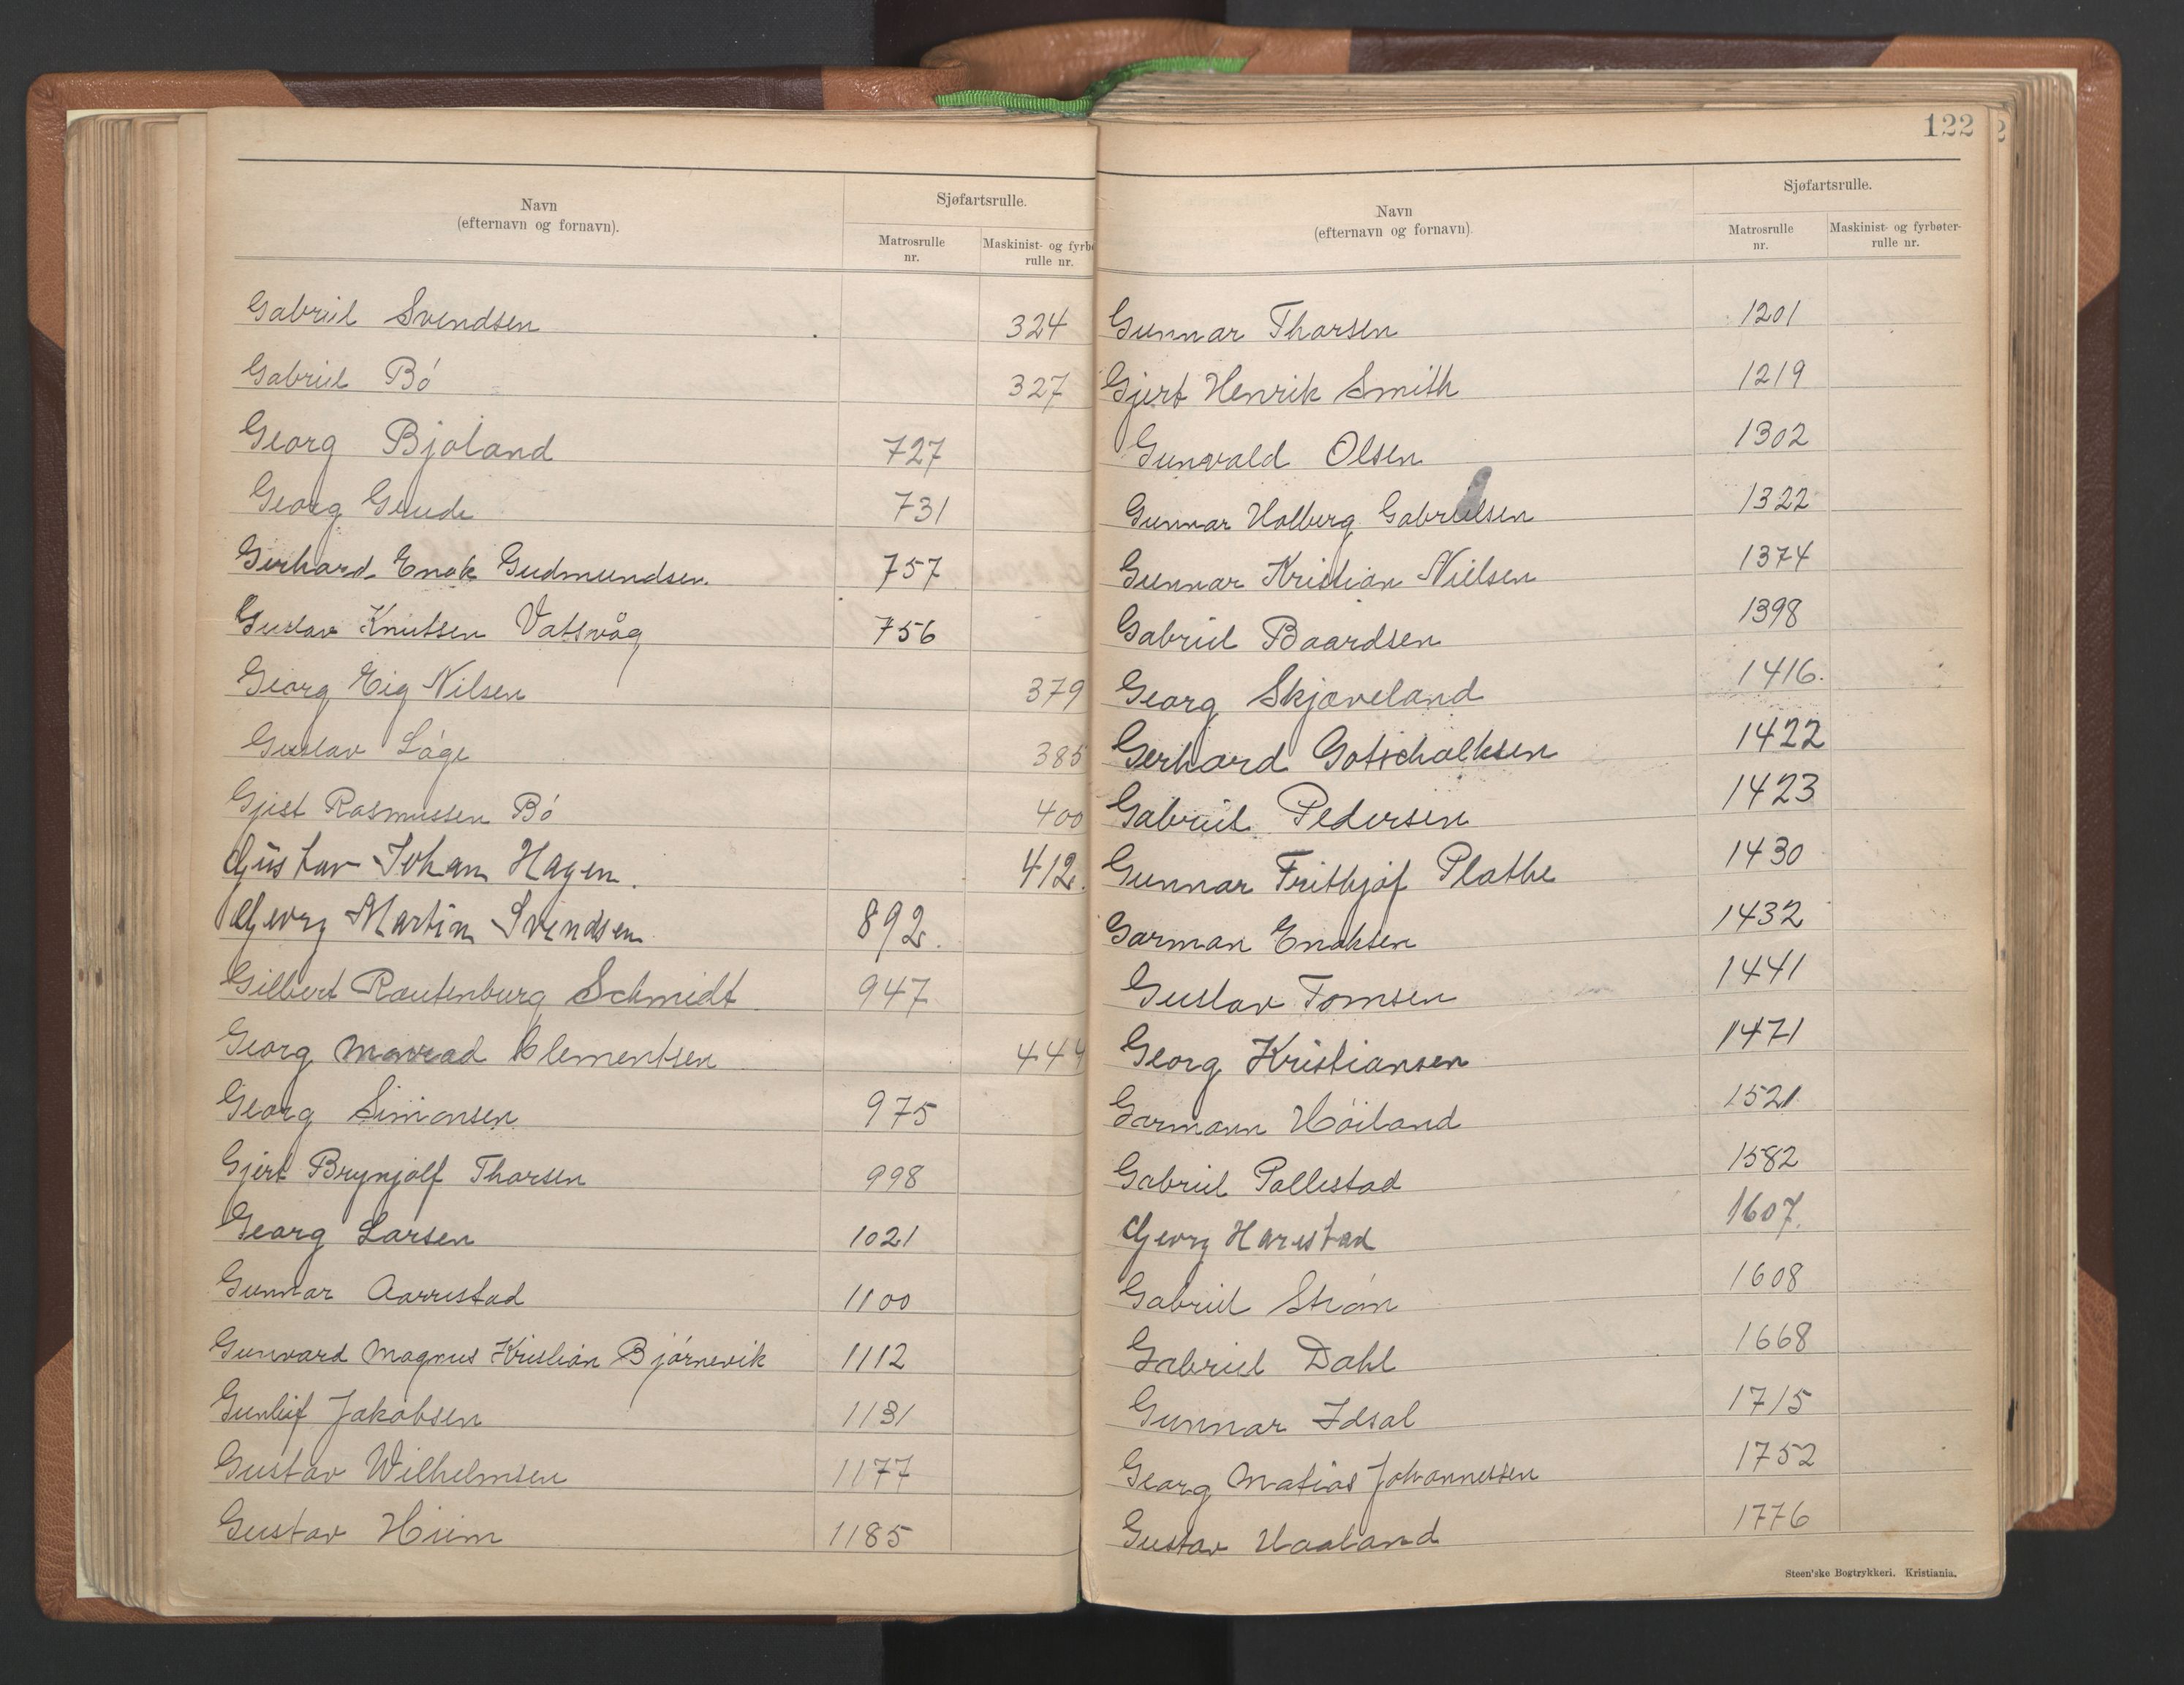 Navn
(efternavn og fornavn).
Sjøfartsrulle.
Matrosrulle
nr.
Maskinist- og fyrbø
rulle nr.
Gabriel Svendsen 324
Gabriel Bö 327
Georg Bjoland 727
Georg Geude 731
Gerhard Enok Gudmundsen. 757
Gustav Knutsen Vatsvåg 756
Georg Eig Nilsen 379
Gustav Löge 385
Gjest Rasmussen Bö 400
Gustav Johan Hagen. 412.
Georg Martin Svendsen 892.
Gilbert Rautenburg Schmidt 947
Georg Konrad Clementsen 444
Georg Simonsen 975
Gjert Brynjolf Thorsen 998
Georg Larsen 1021
Gunnar Aarrestad 1100
Gunvard Magnus Kristian Bjørnevik 1112
Gunleif Jakobsen 1131
Gustav Wilhelmsen 1177
Gustav Hiim 1185
122
Navn
(efternavn og fornavn).
Sjøfartsrulle.
Matrosrulle
nr.
Maskinist- og fyrbøter-
rulle nr.
Gunnar Thorsen 1201
Gjert Henrik Smith 1219
Gunvald Olsen 1302
Gunnar Holberg Gabrielsen 1322
Gunnar Kristian Nielsen 1374
Gabriel Baardsen 1398
Georg Skjæveland 1416.
Gerhard Gotschalksen 1422
Gabriel Pedersen 1423
Gunnar Frithjof Plathe 1430
Garman Enoksen 1432
Gustav Tomsen 1441
Georg Kristiansen 1471
Garmann Höiland 1521
Gabriel Pollestad 1582
Georg Harestad 1607.
Gabriel Strøm 1608
Gabriel Dahl 1668
Gunnar Idsal 1715
Georg Matias Johannessen 1752
Gustav Haaland 1776
Steen'ske Bogtrykkeri. Kristiania.